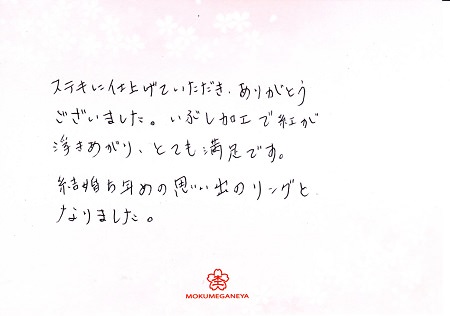 ステキに仕上げていただき、ありがとう
ございました。いぶし加工で紅が
浮きあがり、とても満足です。
結婚5年めの思い出のリングと
なりました。
MOKUMEGANEYA